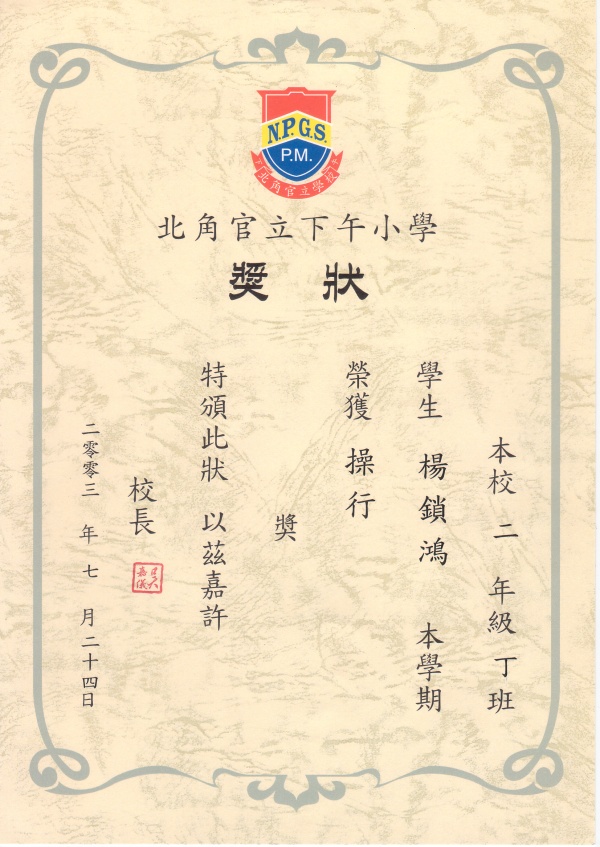 N.P.G.S.
P.M.
北角官立學校
北角官立下午小學
獎狀
本校 二 年級 丁班
學生 楊鎖鴻 本學期
榮獲 操行
獎
特頒此狀 以茲嘉許
校長
二零零三 年 七 月 二十四日